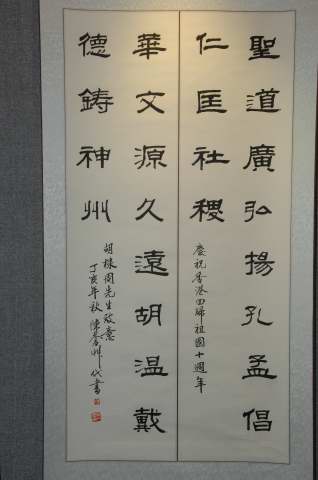 聖道廣弘揚孔孟倡
仁匡社稷
慶祝香港回歸祖國十週年
華文源久遠胡温戴
德鑄神州
胡棣周先生致意
丁亥年秋陳谷州代書